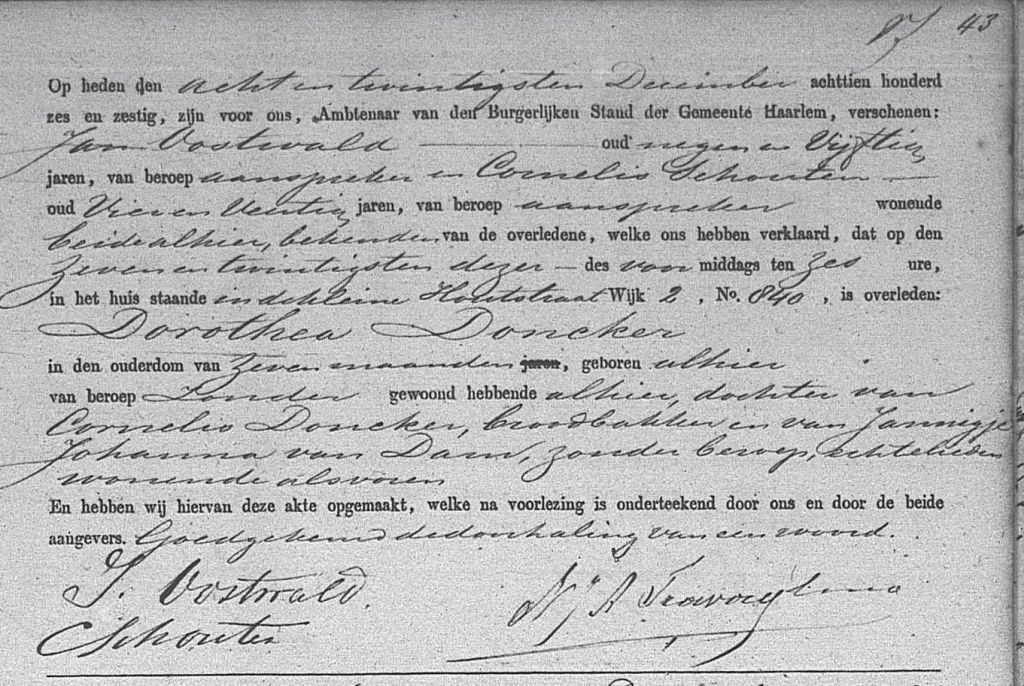 43
Op heden den acht en twintigsten December achttien honderd
zes en zestig, zijn voor ons, Ambtenaar van den Burgerlijken Stand der Gemeente Haarlem, verschenen:
Jan Oostwald oud negen en Vijftig
jaren, van beroep aanspreker en Cornelis Schouten
oud Vier en Veertig jaren, van beroep aanspreker wonende
beide alhier, bekenden, van de overledene, welke ons hebben verklaard, dat op den
zeven en twintigsten dezer – des voor middags ten zes ure,
in het huis staande in de kleine Houtstraat Wijk 2, No. 840, is overleden:
Dorothea Doncker
in den ouderdom van zeven maanden jaren, geboren alhier
van beroep Zonder gewoond hebbende alhier, dochter van
Cornelis Doncker, broodbakker en van Jannigje
Johanna van Dam, zonder beroep, echtelieden
wonende als voren
En hebben wij hiervan deze akte opgemaakt, welke na voorlezing is onderteekend door ons en door de beide
aangevers. Goedgekeurd de doorhaling van een woord.
J. Oostwald.
CSchouten